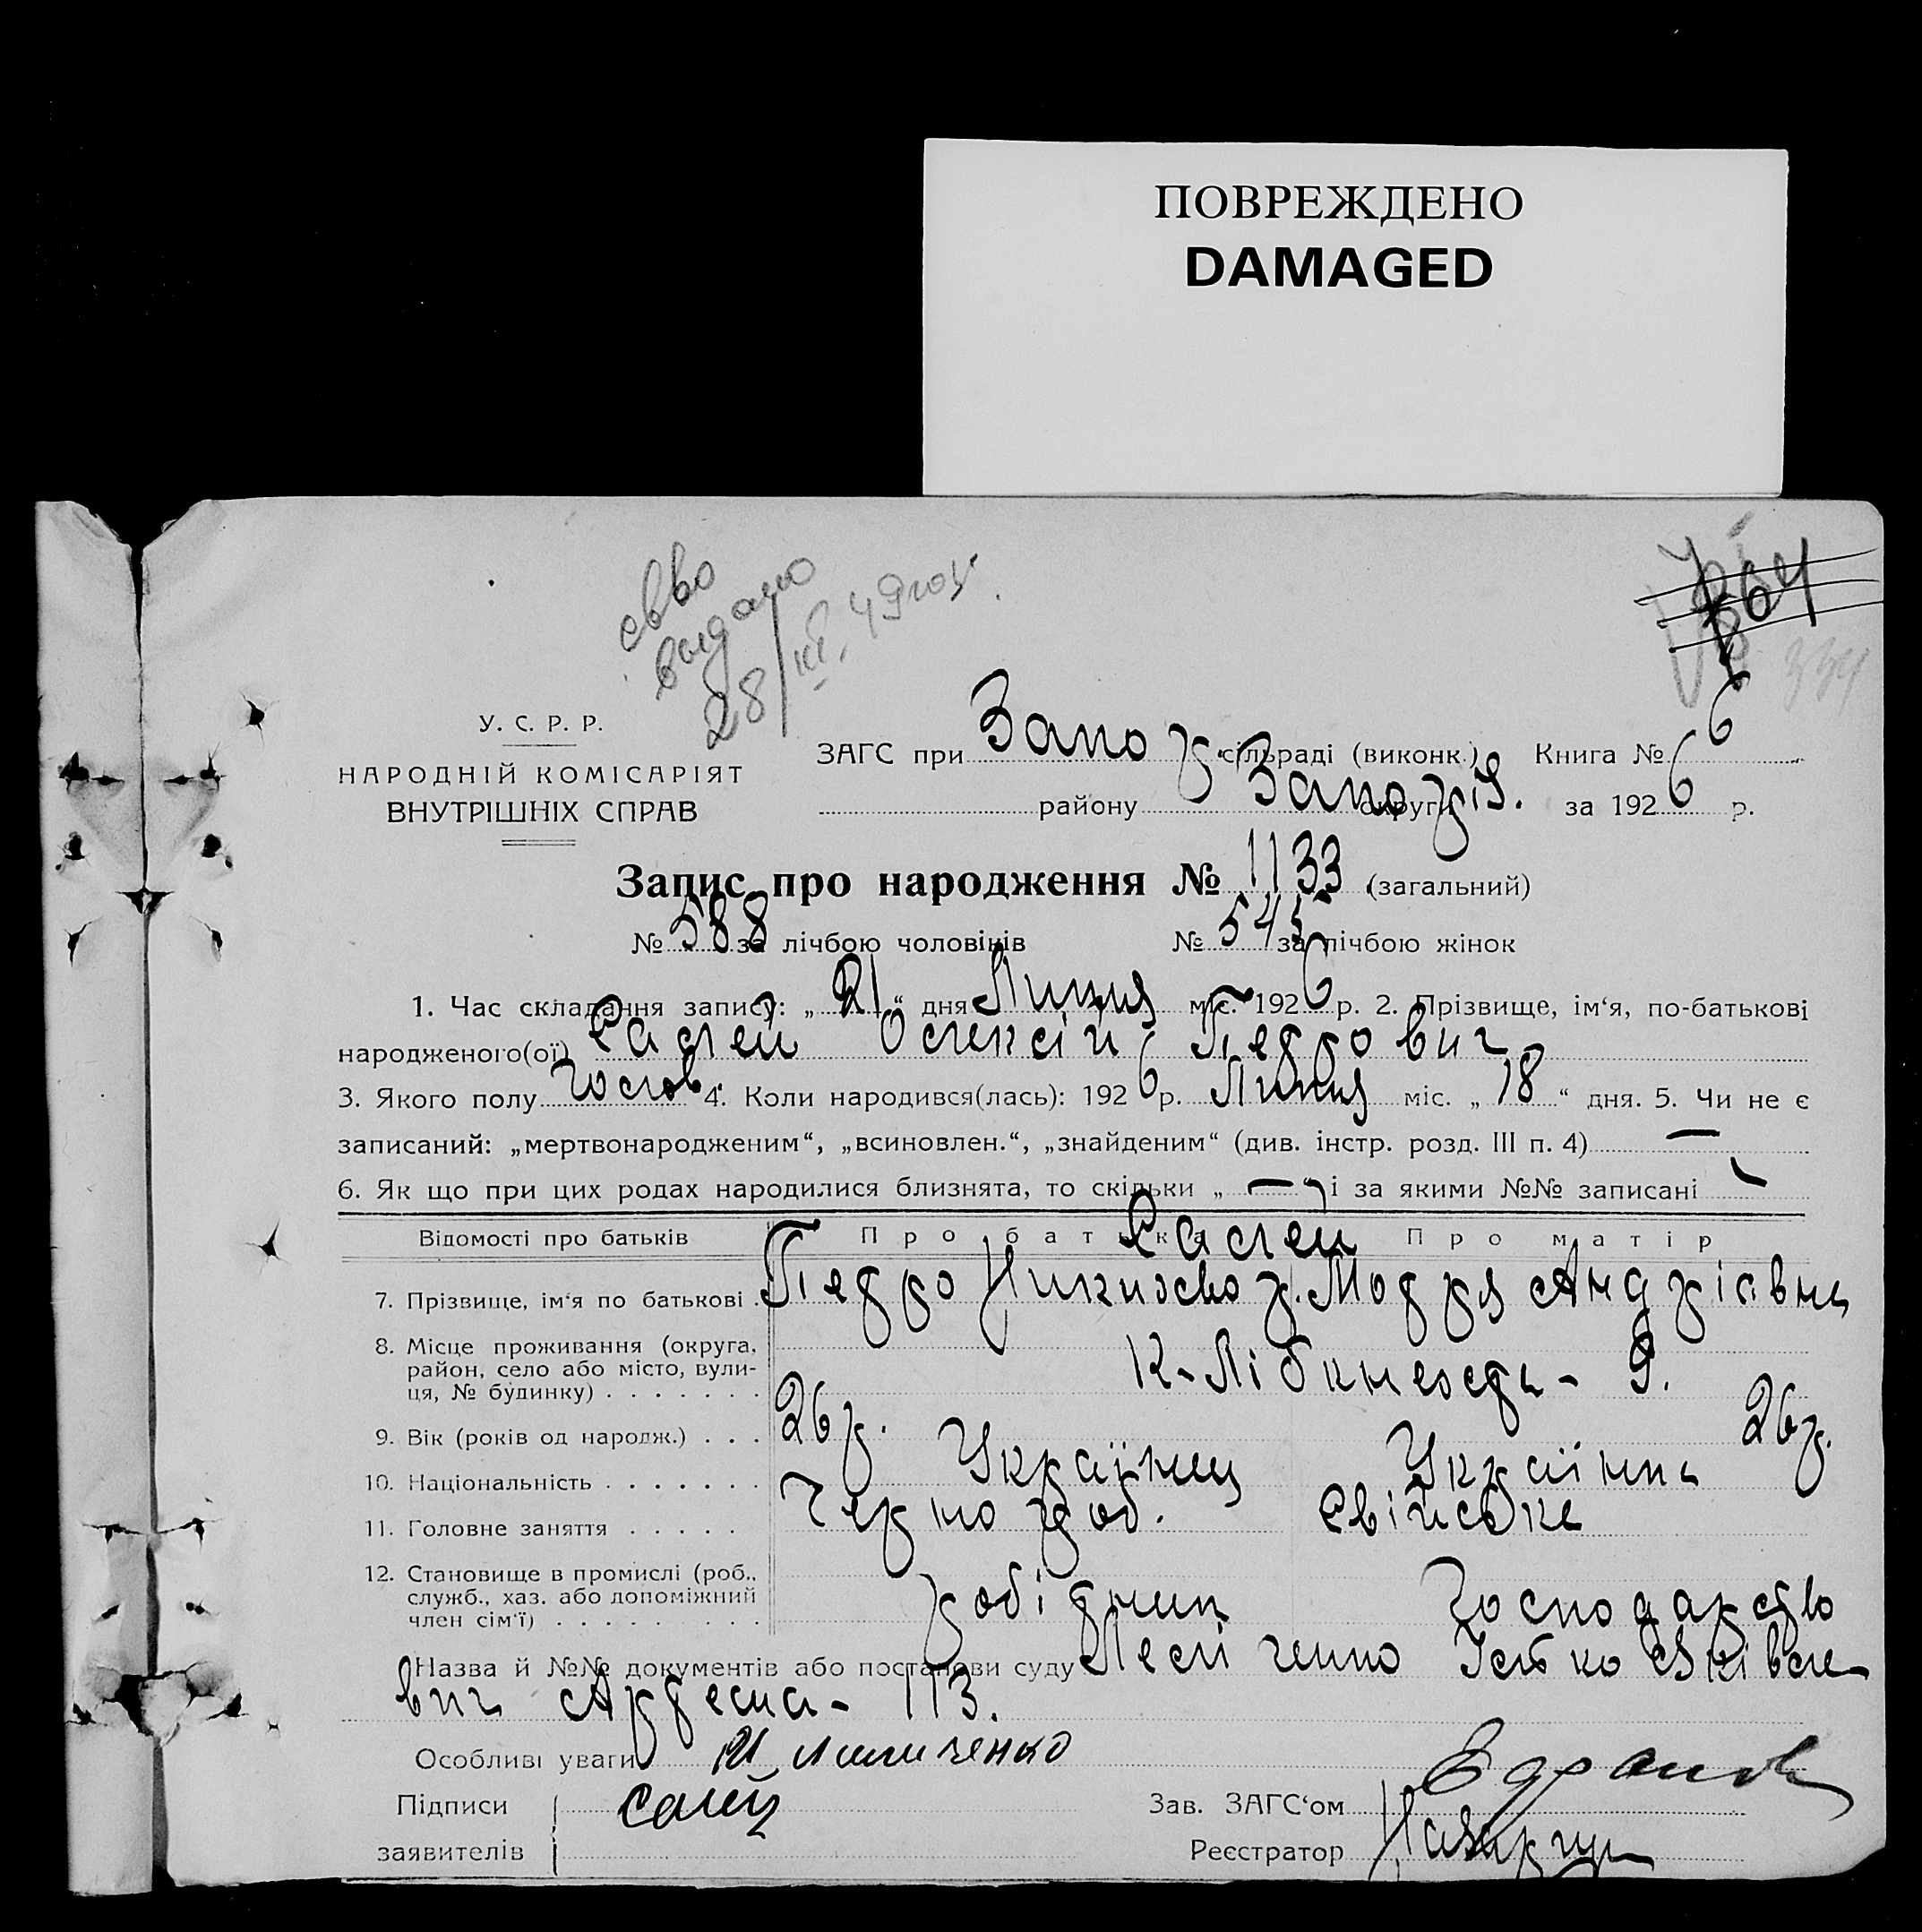 ПОВРЕЖДЕНО
DAMAGED
св-во
выдано
28/III. 49 году.
У. С. Р. Р.
НАРОДНІЙ КОМІСАРІЯТ
ВНУТРІШНІХ СПРАВ
ЗАГС при Запор. сільраді (виконк.) Книга № 6
району Запоріз. округи за 1926 р.
Запис про народження № 1133 (загальний)
№ 588 за лічбою чоловіків № 545 за лічбою жінок
1. Час складання запису: „21“ дня Липня міс. 1926 р. 2. Прізвище, ім‘я, по-батькові
народженого(ої) Салей Олексій Педрович
3. Якого полу Чолов. 4. Коли народився(лась): 1926 р. Липня міс. „18“ дня. 5. Чи не є
записаний: „мертвонародженим“, „всиновлен.“, „знайденим“ (див. інстр. розд. III п. 4) —
6. Як що при цих родах народилися близнята, то скільки „—“ і за якими №№ записані —
Відомості про батьків Про батька Про матір
Салей
7. Прізвище, ім‘я по батькові Петро Мотря Андріівна
8. Місце проживання (округа,
район, село або місто, вули-
ця, № будинку) К-Лібкнехта - 9.
9. Вік (років од народж.) 26 р. 26 р.
10. Національність Українец Українка
11. Головне заняття Чернороб. Свійське
12. Становище в промислі (роб.,
служб., хаз. або допоміжний
член сім‘ї) робітник Господарство
Назва й №№ документів або постанови суду
вич 113.
Особливі уваги
Підписи
заявителів Салей
Зав. ЗАГС‘ом
Реєстратор